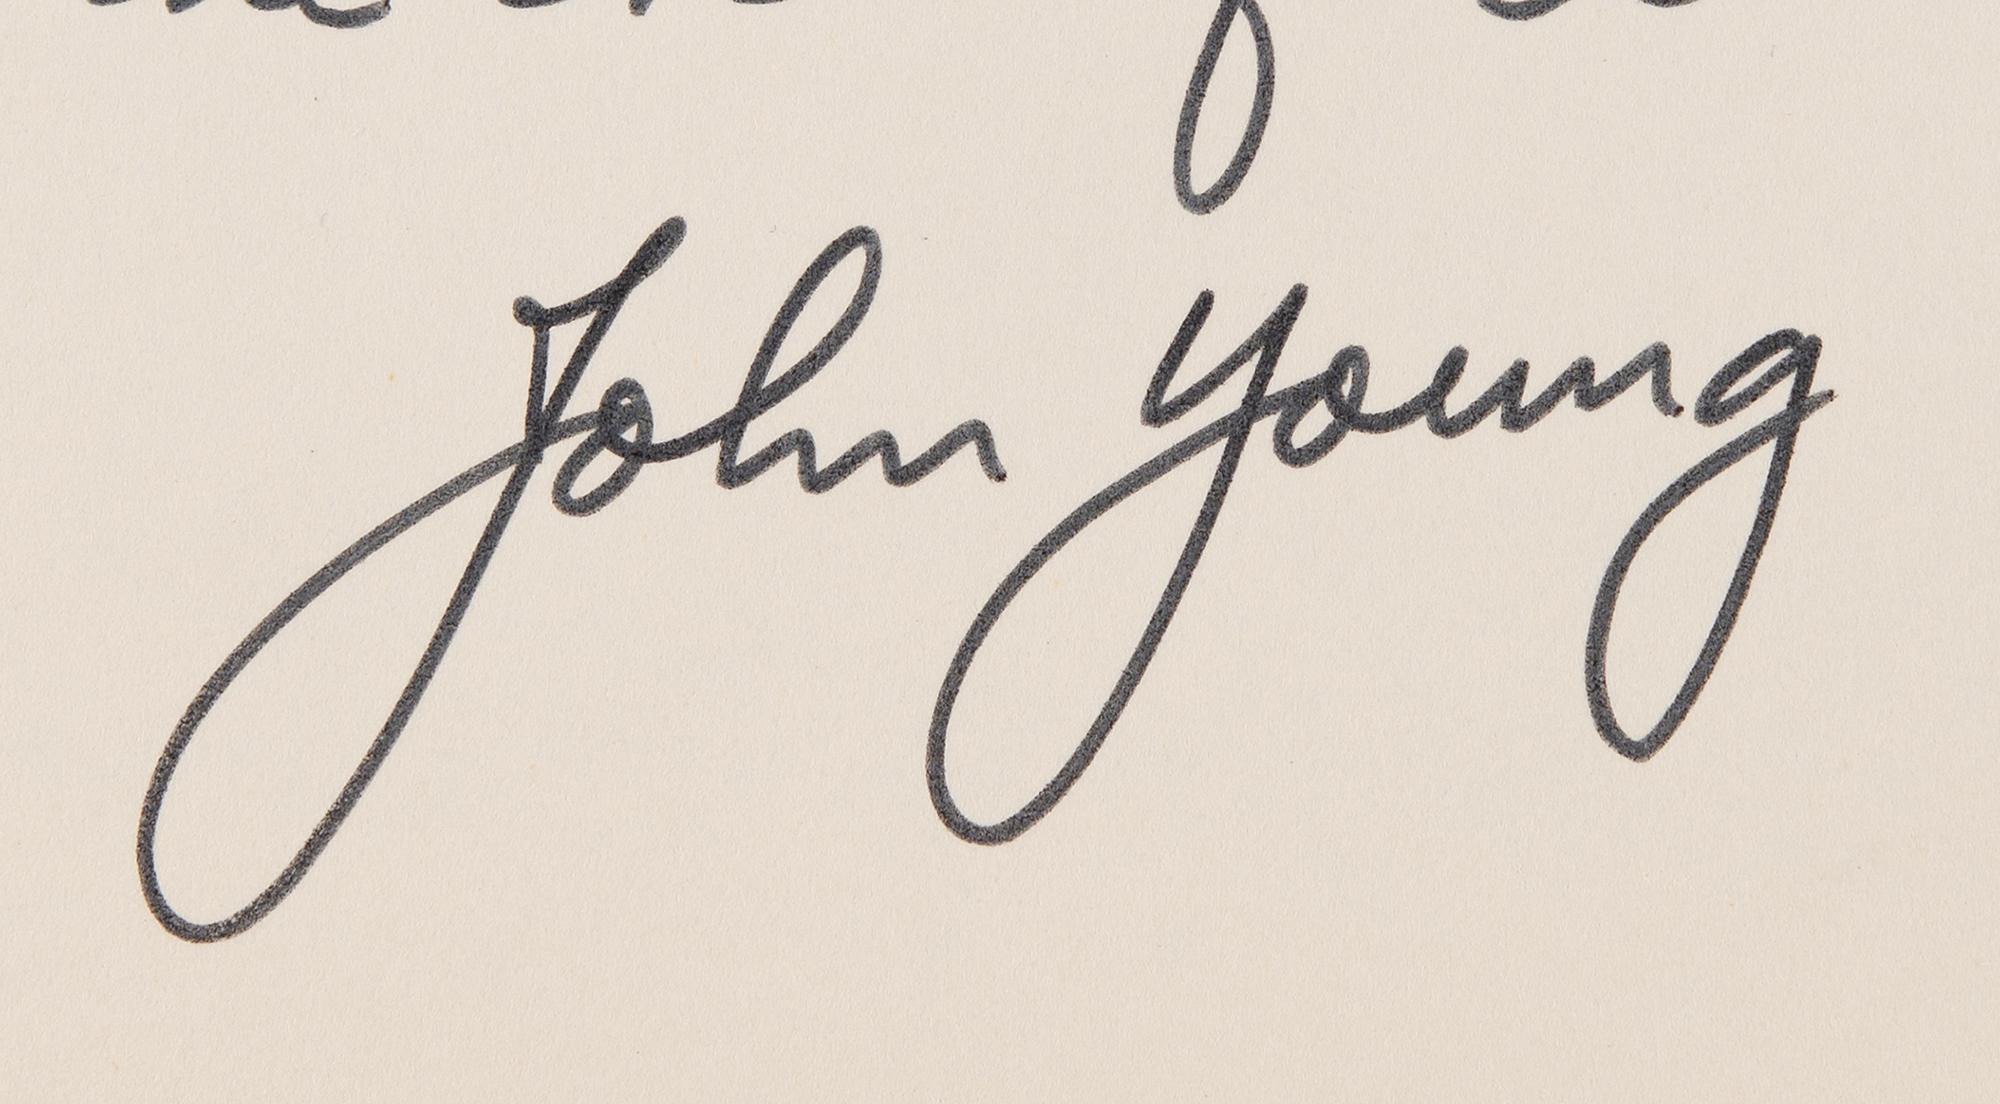 John Young